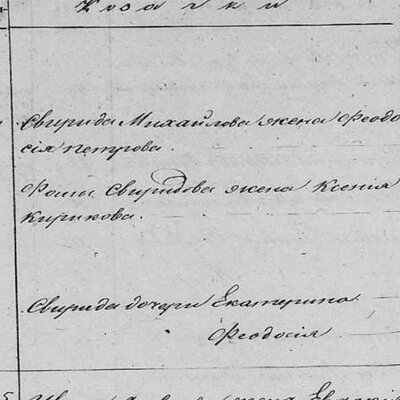 Козачки
Свирида Михайлова жена Феодо
сія Петрова.
Фомы Свиридова жена Ксенія
Кирикова.
Свирида дочери Екатерина
Феодосія
жена